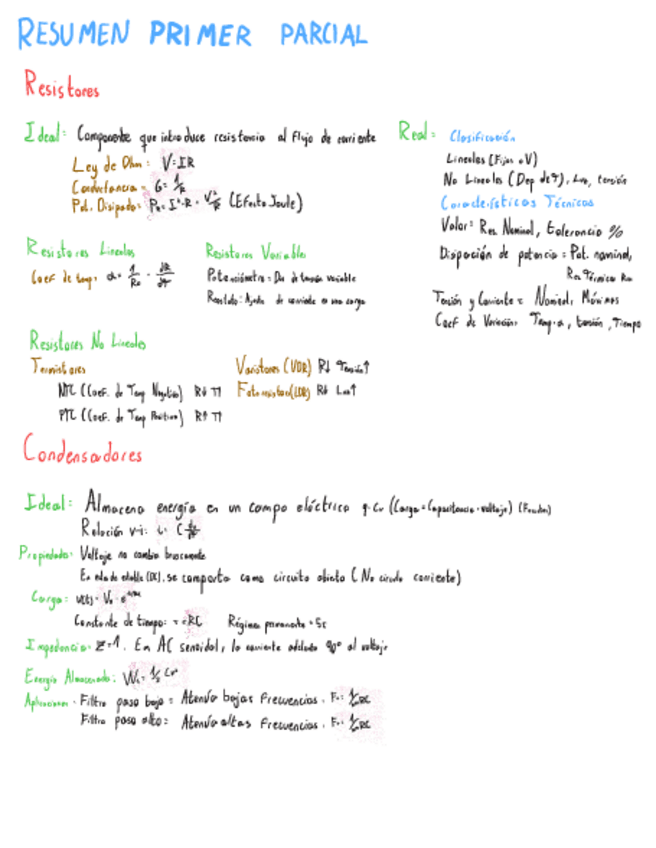 RESUMEN PRIMER PARCIAL
Resistores
Ideal: Componente que introduce resistencia al flujo de corriente
Ley de Ohm: V=IR
Conductancia = G=1/R
Pot. Disipada: P=I²·R= V²/R (Efecto Joule)
Real: Clasificación
Lineales (Fijas o V)
No Lineales (Dep de T), Luz, tensión
Características Técnicas
Valor: Res. Nominal, tolerancia %
Disipación de potencia = Pot. nominal,
Res Térmica
Tensión y Corriente = Nominal, Máximas
Coef de Variación: Temp-α, tensión, Tiempo
Resistores Lineales
Coef de temp.
Resistores Variables
Potenciómetro: Div de tensión variable
Reostato: Ajusta de corriente en una carga
Resistores No Lineales
Termistores
NTC (Coef. de Temp Negativo) R↓ T↑
PTC (Coef. de Temp Positivo) R↑ T↑
Varistores (VDR) R↓ Tensión↑
Fotoresistor (LDR) R↓ Luz↑
Condensadores
Ideal: Almacena energía en un campo eléctrico q=Cv (Carga=Capacitancia·voltaje) (Faradios)
Relación v-i: i= C dv/dt
Propiedades: Voltaje no cambia bruscamente
En estado estable (DC), se comporta como circuito abierto (No circula corriente)
Carga:
Constante de tiempo: τ=RC Régimen permanente = 5τ
Impedancia: Z=1. En AC senoidal, la corriente adelanta 90° al voltaje
Energía Almacenada: W= 1/2 Cv²
Aplicaciones: Filtro paso bajo = Atenúa bajas frecuencias.
Filtro paso alto: Atenúa altas frecuencias.